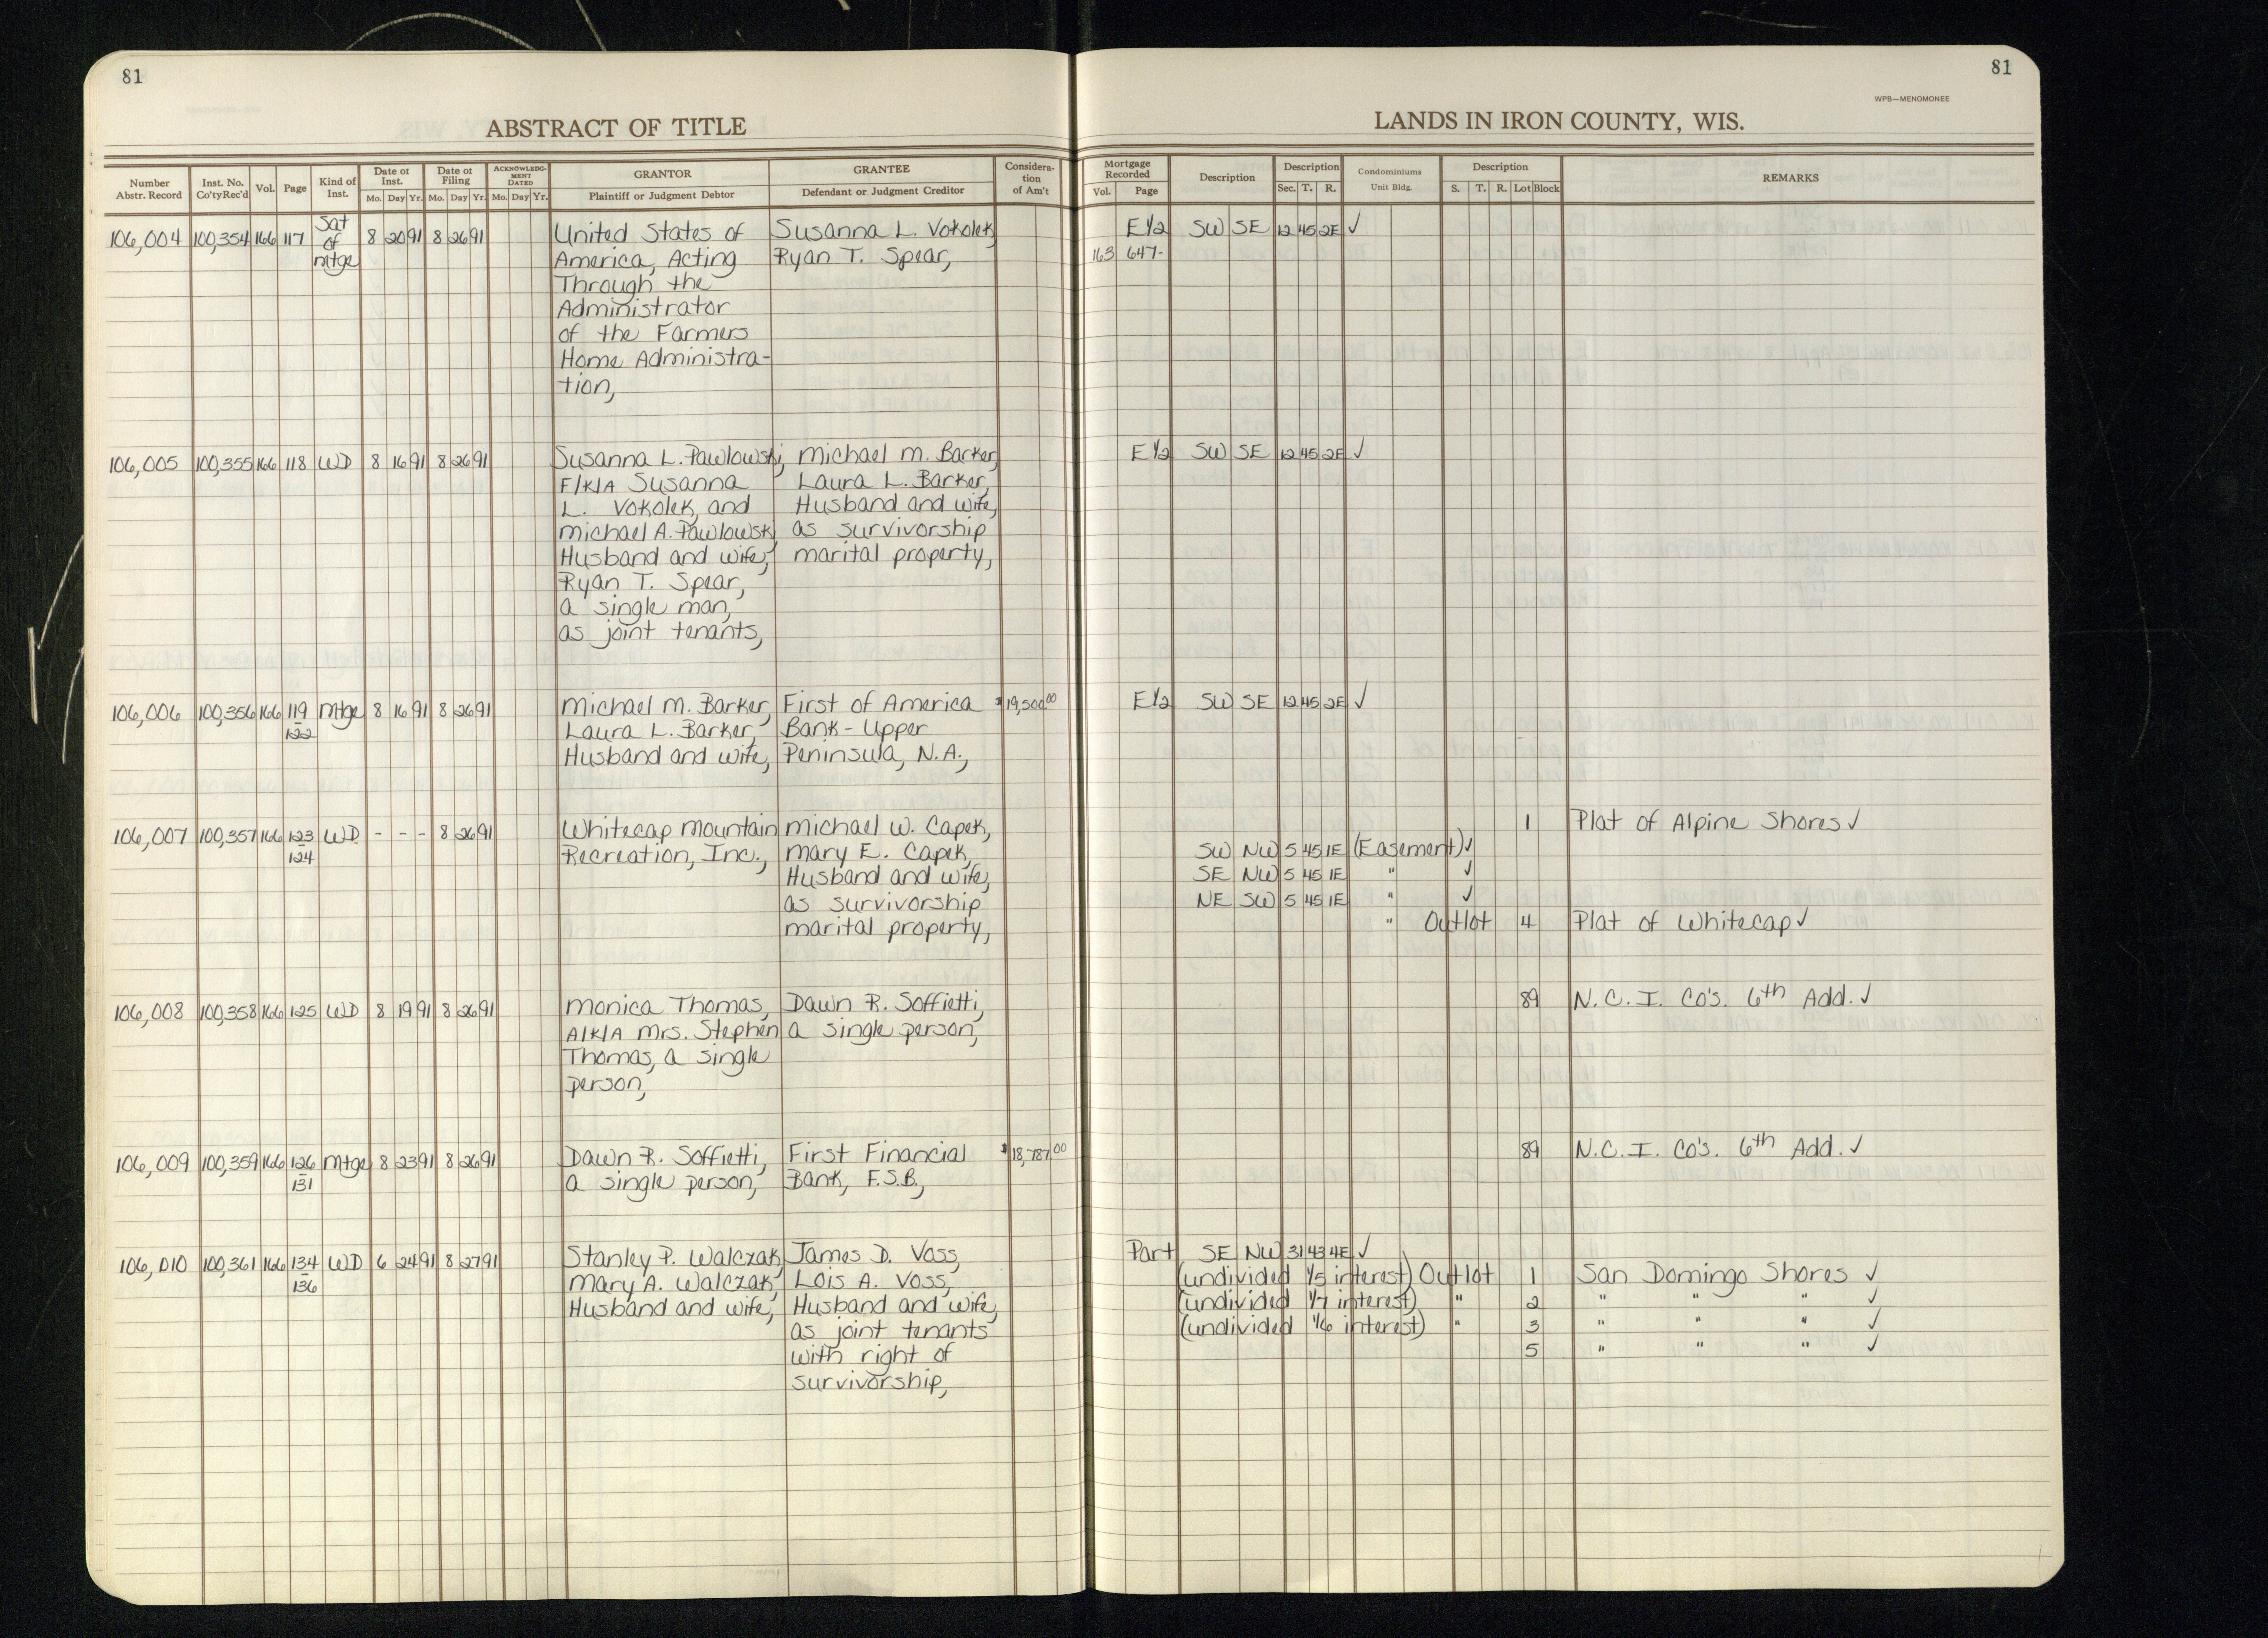 81
81
WPB—MENOMONEE
ABSTRACT OF TITLE
LANDS IN IRON COUNTY, WIS.
Number Abstr. Record | Inst. No. Co'ty Rec'd | Vol. | Page | Kind of Inst. | Date of Inst. Mo. Day Yr. | Date of Filing Mo. Day Yr. | ACKNOWLEDGMENT DATED Mo. Day Yr. | GRANTOR Plaintiff or Judgment Debtor | GRANTEE Defendant or Judgment Creditor | Consideration of Am't | Mortgage Recorded Vol. Page | Description | Description Sec. T. R. | Condominiums Unit Bldg. | Description S. T. R. Lot Block | REMARKS
106,004 100,354 166 117 Sat of mtge 8 20 91 8 26 91 United States of Susanna L. Vokolek, E 1/2 SW SE 12 45 2E ✓
America, Acting Ryan T. Spear, 163 647-
Through the
Administrator
of the Farmers
Home Administra-
tion,
106,005 100,355 166 118 WD 8 16 91 8 26 91 Susanna L. Pawlowski, Michael M. Barker, E 1/2 SW SE 12 45 2E ✓
F/K/A Susanna Laura L. Barker,
L. Vokolek, and Husband and wife,
Michael A. Pawlowski, as survivorship
Husband and wife, marital property,
Ryan T. Spear,
a single man,
as joint tenants,
106,006 100,356 166 119 - 122 Mtge 8 16 91 8 26 91 Michael M. Barker, First of America $19,500.00 E 1/2 SW SE 12 45 2E ✓
Laura L. Barker, Bank - Upper
Husband and wife, Peninsula, N.A.,
106,007 100,357 166 123 - 124 WD - - - 8 26 91 Whitecap Mountain Michael W. Capek, 1 Plat of Alpine Shores ✓
Recreation, Inc., Mary E. Capek, SW NW 5 45 1E (Easement) ✓
Husband and wife, SE NW 5 45 1E " ✓
as survivorship NE SW 5 45 1E " ✓
marital property, " Outlot 4 Plat of Whitecap ✓
106,008 100,358 166 125 WD 8 19 91 8 26 91 Monica Thomas, Dawn R. Soffietti, 89 N.C.I. Co's. 6th Add. ✓
A/K/A Mrs. Stephen a single person,
Thomas, a single
person,
106,009 100,359 166 126 - 131 Mtge 8 23 91 8 26 91 Dawn R. Soffietti, First Financial $18,787.00 89 N.C.I. Co's. 6th Add. ✓
a single person, Bank, F.S.B.,
106,010 100,361 166 134 - 136 WD 6 24 91 8 27 91 Stanley P. Walczak, James D. Voss, Part SE NW 31 43 4E ✓
Mary A. Walczak, Lois A. Voss, (undivided 1/5 interest) Outlot 1 San Domingo Shores ✓
Husband and wife, Husband and wife, (undivided 1/7 interest) " 2 " " " ✓
as joint tenants (undivided 1/6 interest) " 3 " " " ✓
with right of 5 " " " ✓
survivorship,